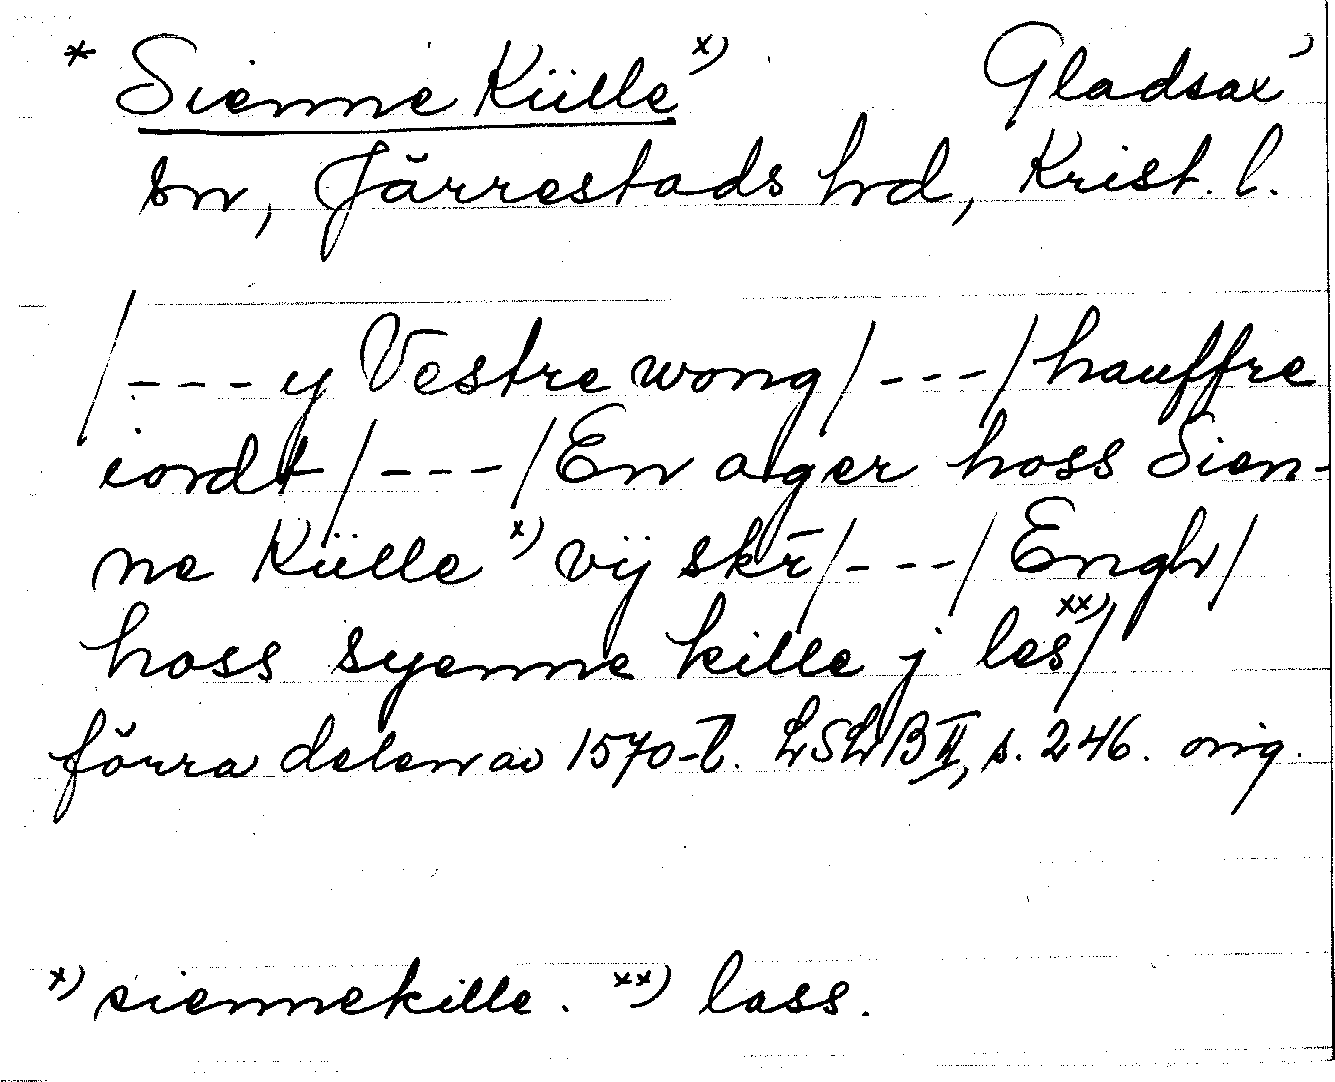 * Sienne Külle x) Gladsax'
sn, Järrestads hd, Krist. l.
/--- y Vestre wong/---/hauffre
iordt/---/En ager hoss Sien-
ne Külle x) vij skr̄/---/Engh/
hoss syenne kille j les xx)/
förra delen av 1570-t. LSLB II, s. 246. orig.
x) siennekille. xx) lass.